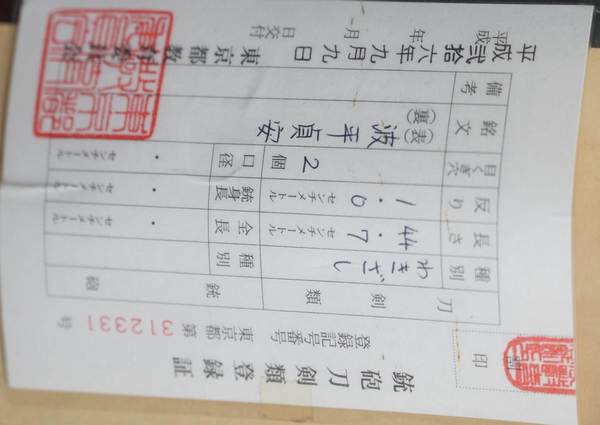 銃砲刀剣類登録証
登録記号番号 東京都 第 312331 号
印
刀剣類
銃砲
種別 わきざし
種別
長さ 44・7 センチメートル
全長 ・ センチメートル
反り 1・0 センチメートル
銃身長 ・ センチメートル
目くぎ穴 2個
口径 ・ センチメートル
銘文 (表) 波平貞安
(裏)
備考
平成弐拾六年九月九日 東京都教
平成 年 月 日交付